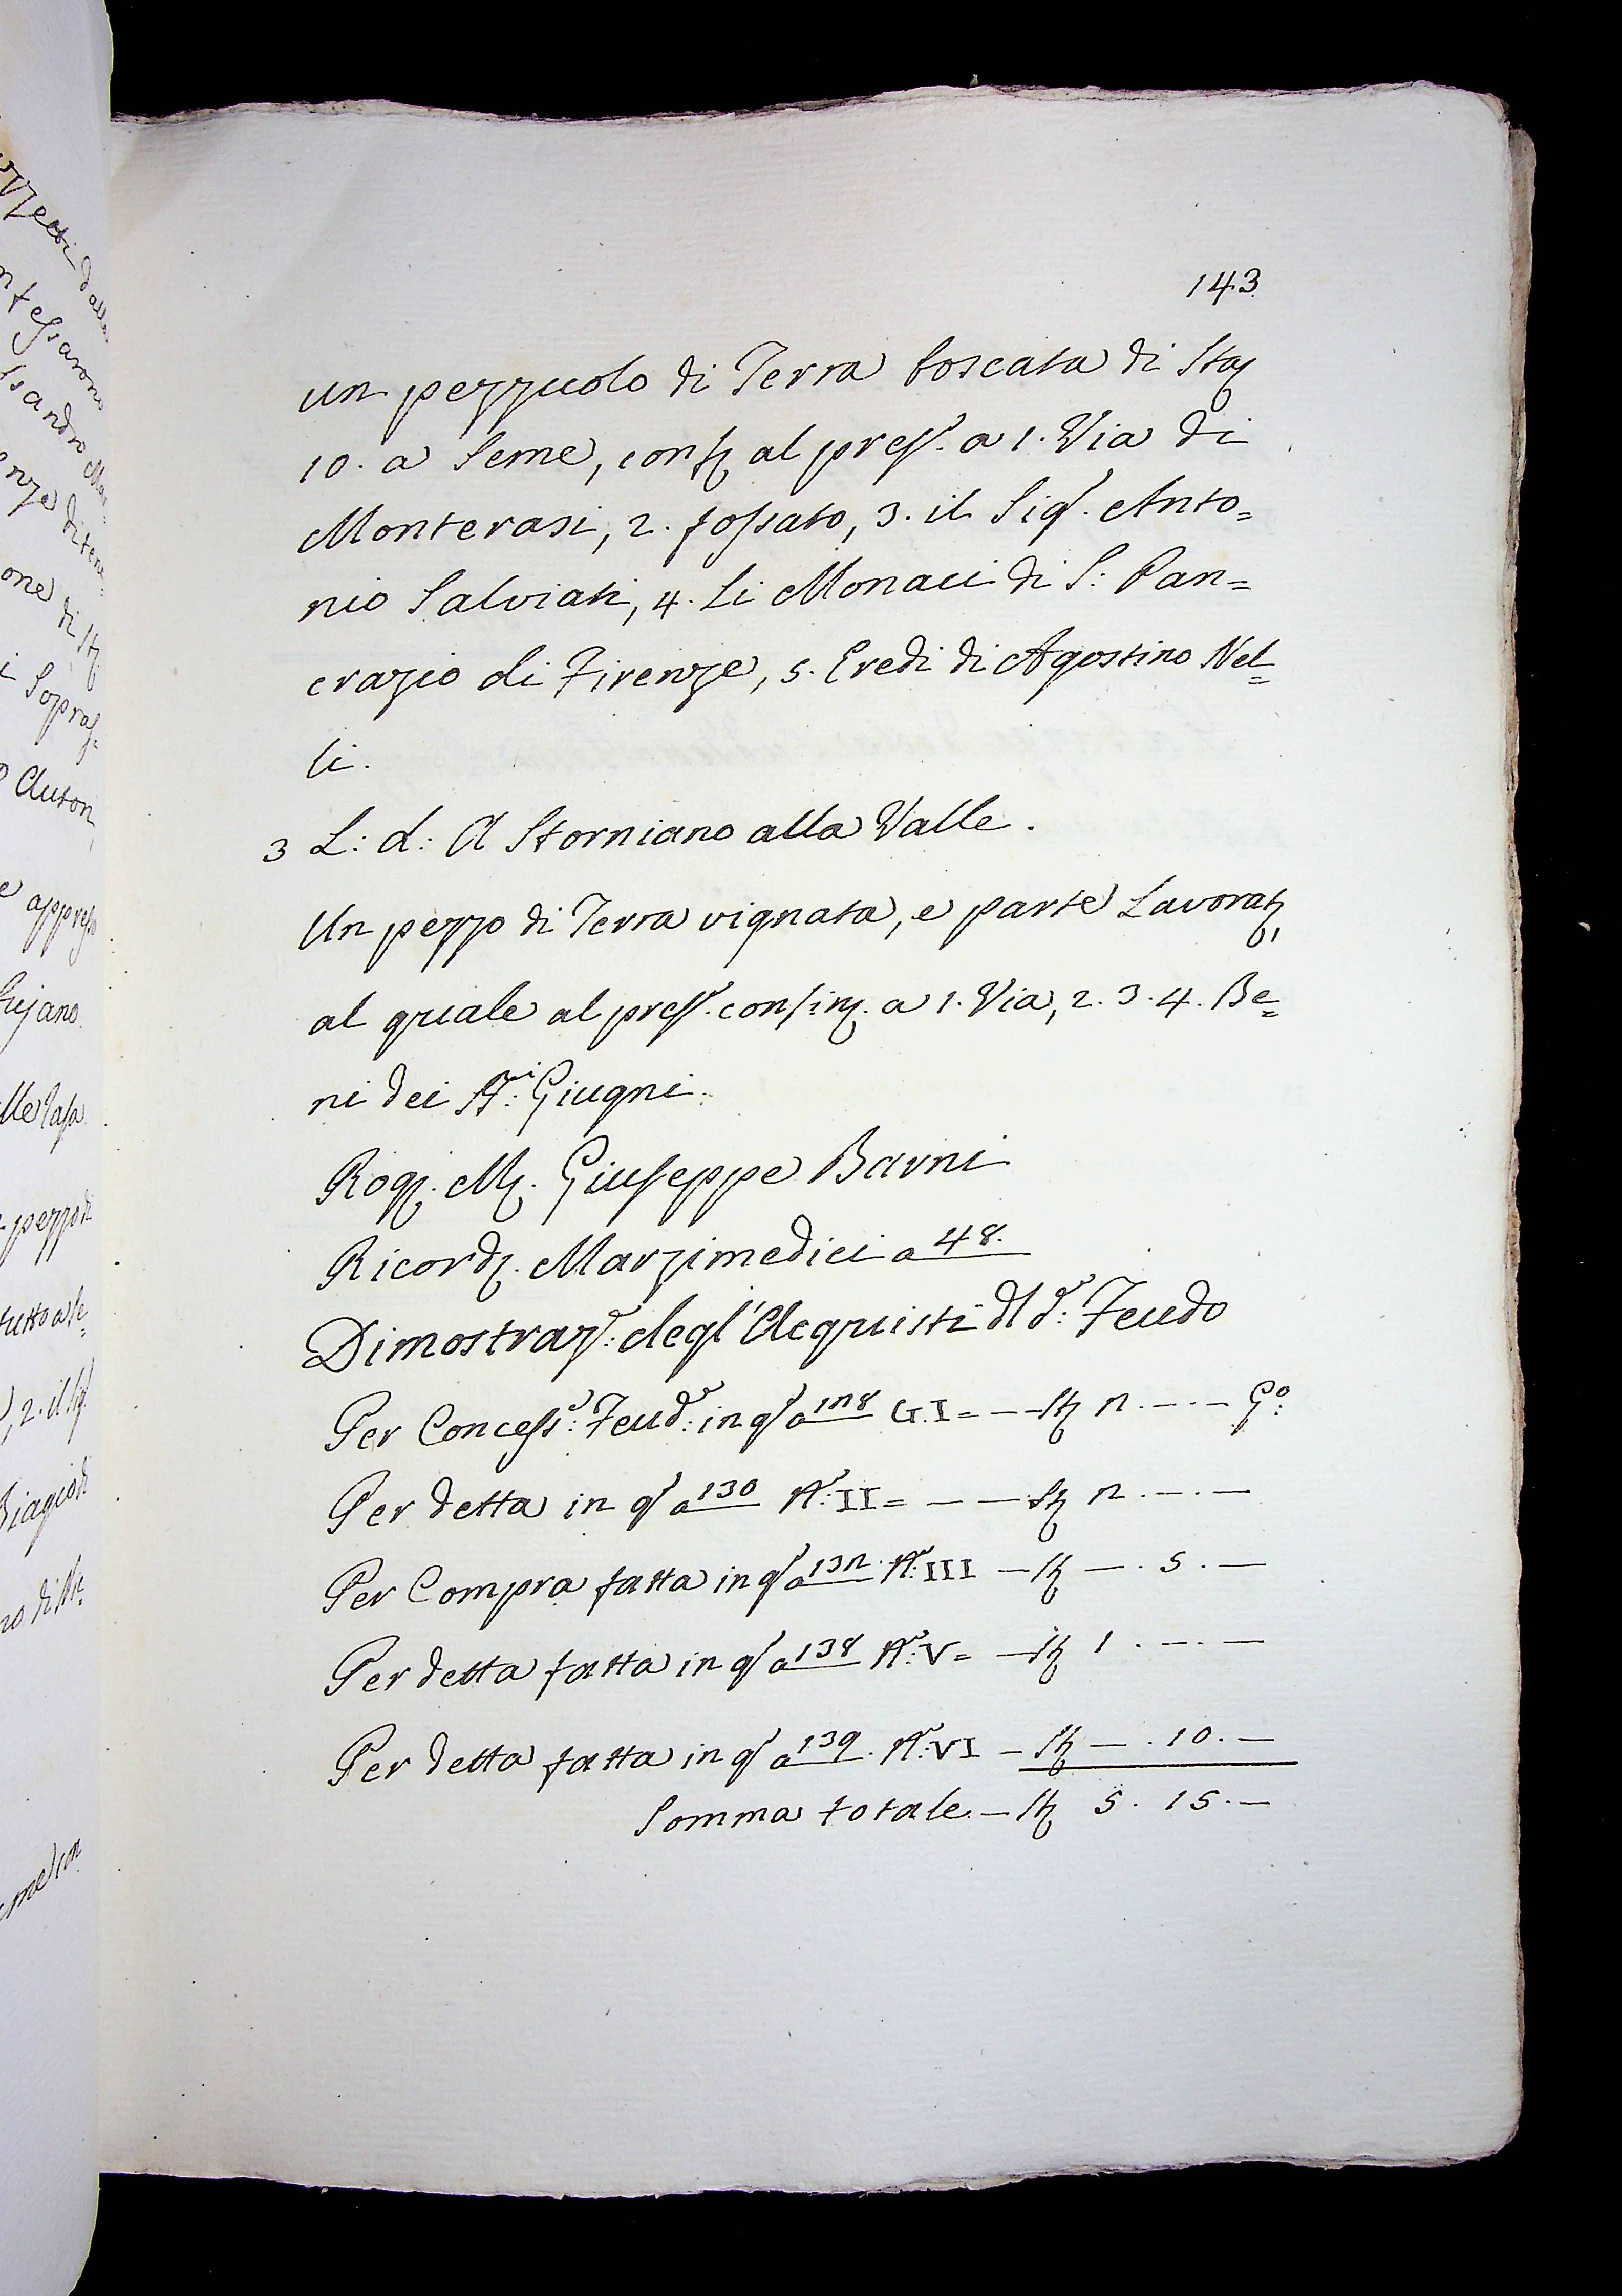 143
un pezzuolo di Terra boscata di Sta
10. a Seme, conf al press. a 1. Via di
Monterasi, 2. fossato, 3. il Sig. Anto=
nio Salviati, 4. Li Monaci di S: Pan=
crazio di Firenze, 5. Eredi di Agostino Nel=
li.
3 L: d: A Storniano alla Valle.
Un pezzo di Terra vignata, e parte Lavorat,
al quale al press. confin. a 1. Via, 2. 3. 4. Be=
ni dei SS:ri Giugni.
Rog. M. Giuseppe Barni
Ricord. Marzimedici a 48.
Dimostraz: degl'Acquisti dl d: Feudo
Per Concess: Feud: in q a 128 G. I = — St 2. —. — Go:
Per detta in q a 130 N: II = — — St 2. —. —
Per Compra fatta in q a 132. N: III — St —. 5. —
Per detta fatta in q a 138 N: V = — St 1. —. —
Per detta fatta in q a 139. N: VI — St —. 10. —
Somma totale. — St 5. 15. —